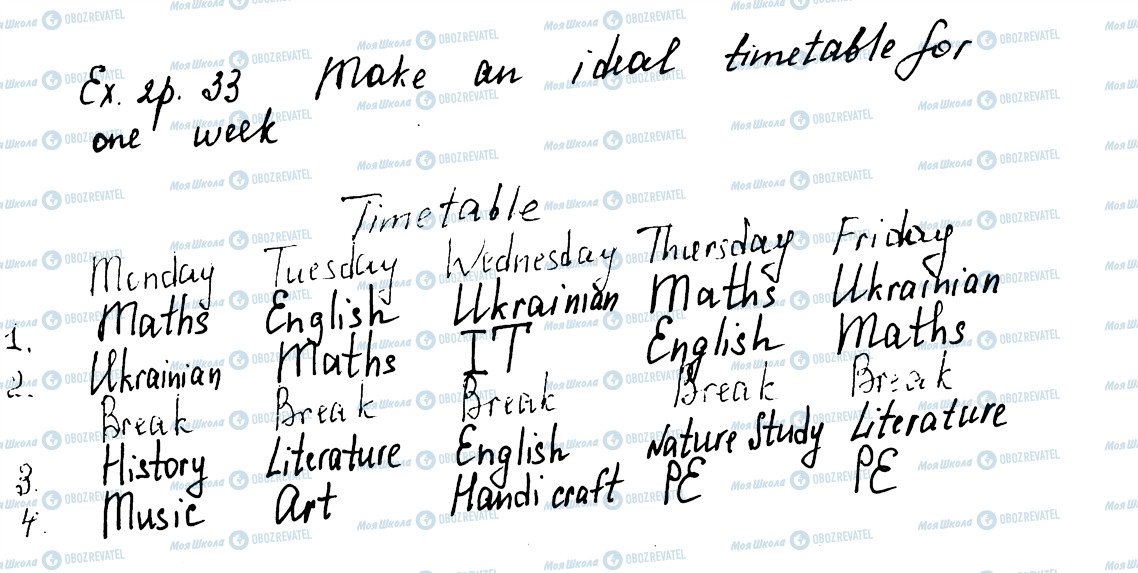 Ex. 2p. 33 Make an ideal timetable for
one week
Timetable
Monday Tuesday Wednesday Thursday Friday
1. Maths English Ukrainian Maths Ukrainian
2. Ukrainian Maths IT English Maths
Break Break Break Break Break
3. History Literature English Nature Study Literature
4. Music Art Handicraft PE PE
Моя Школа OBOZREVATEL